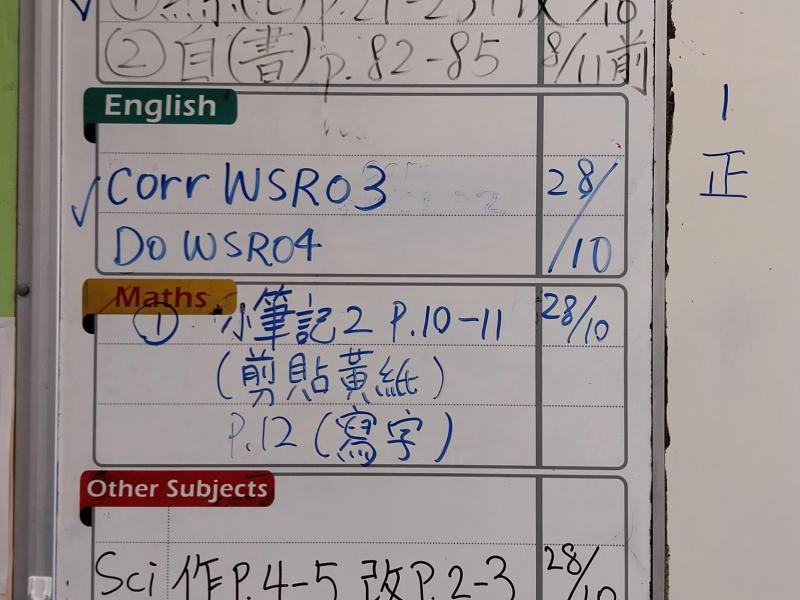 ② 自(書) p.82-85 8/11前
English
✓ Corr WSR03 28/
Do WSR04 /10
Maths
① 小筆記2 P.10-11 28/10
(剪貼黃紙)
P.12 (寫字)
Other Subjects
Sci 作P.4-5 改P.2-3 28/10
1
正